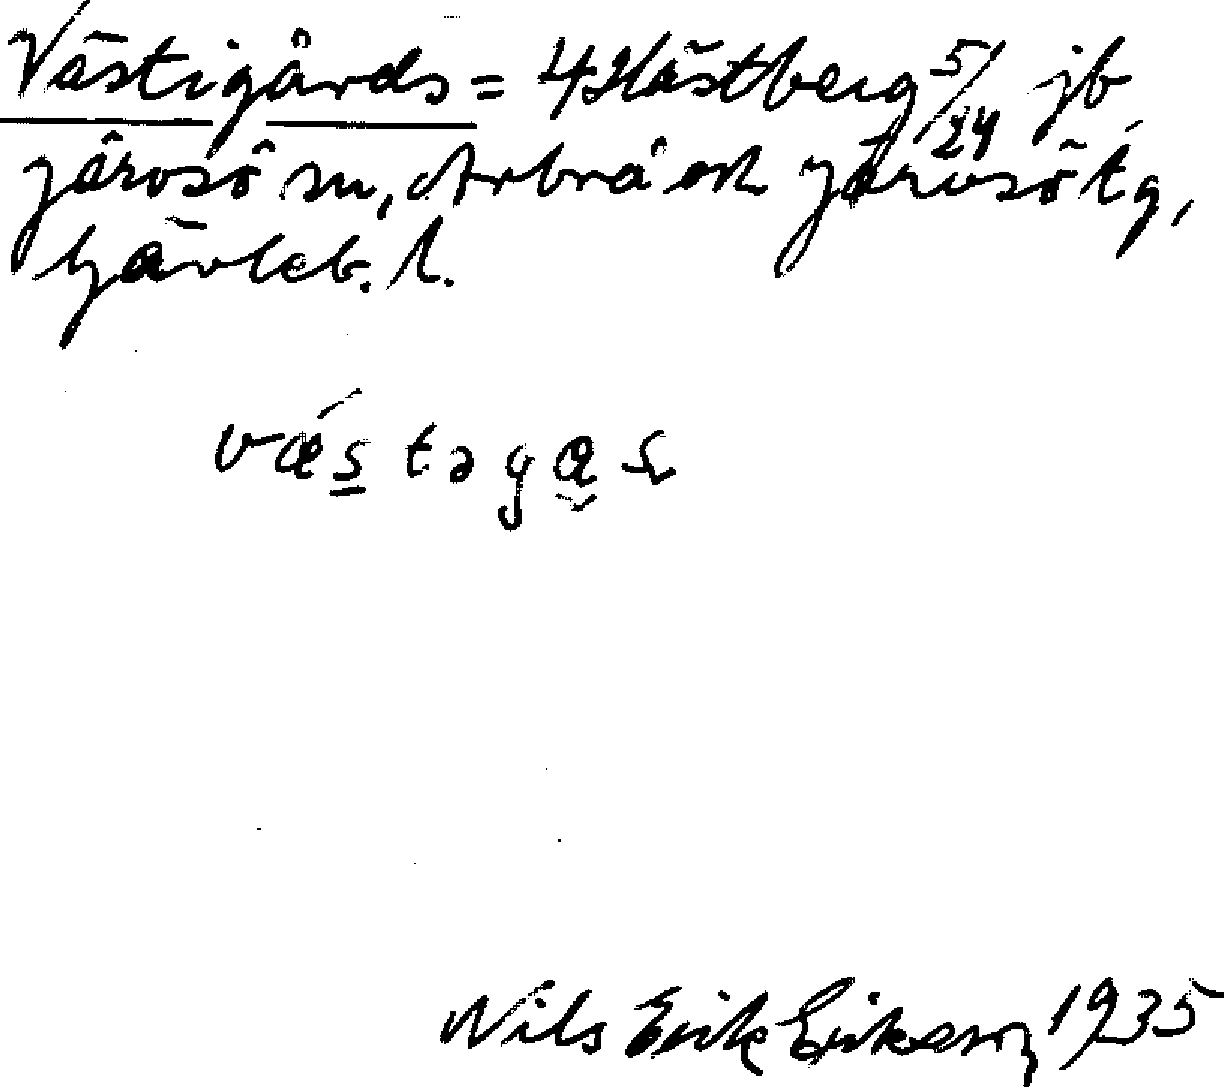 Västigårds = 4 Hästberg 5/24 jb
Järvsö sn, Arbrå och Järvsö tg,
Gävleb. l.
væ´stəgas
Nils Erik Erikson, 1935